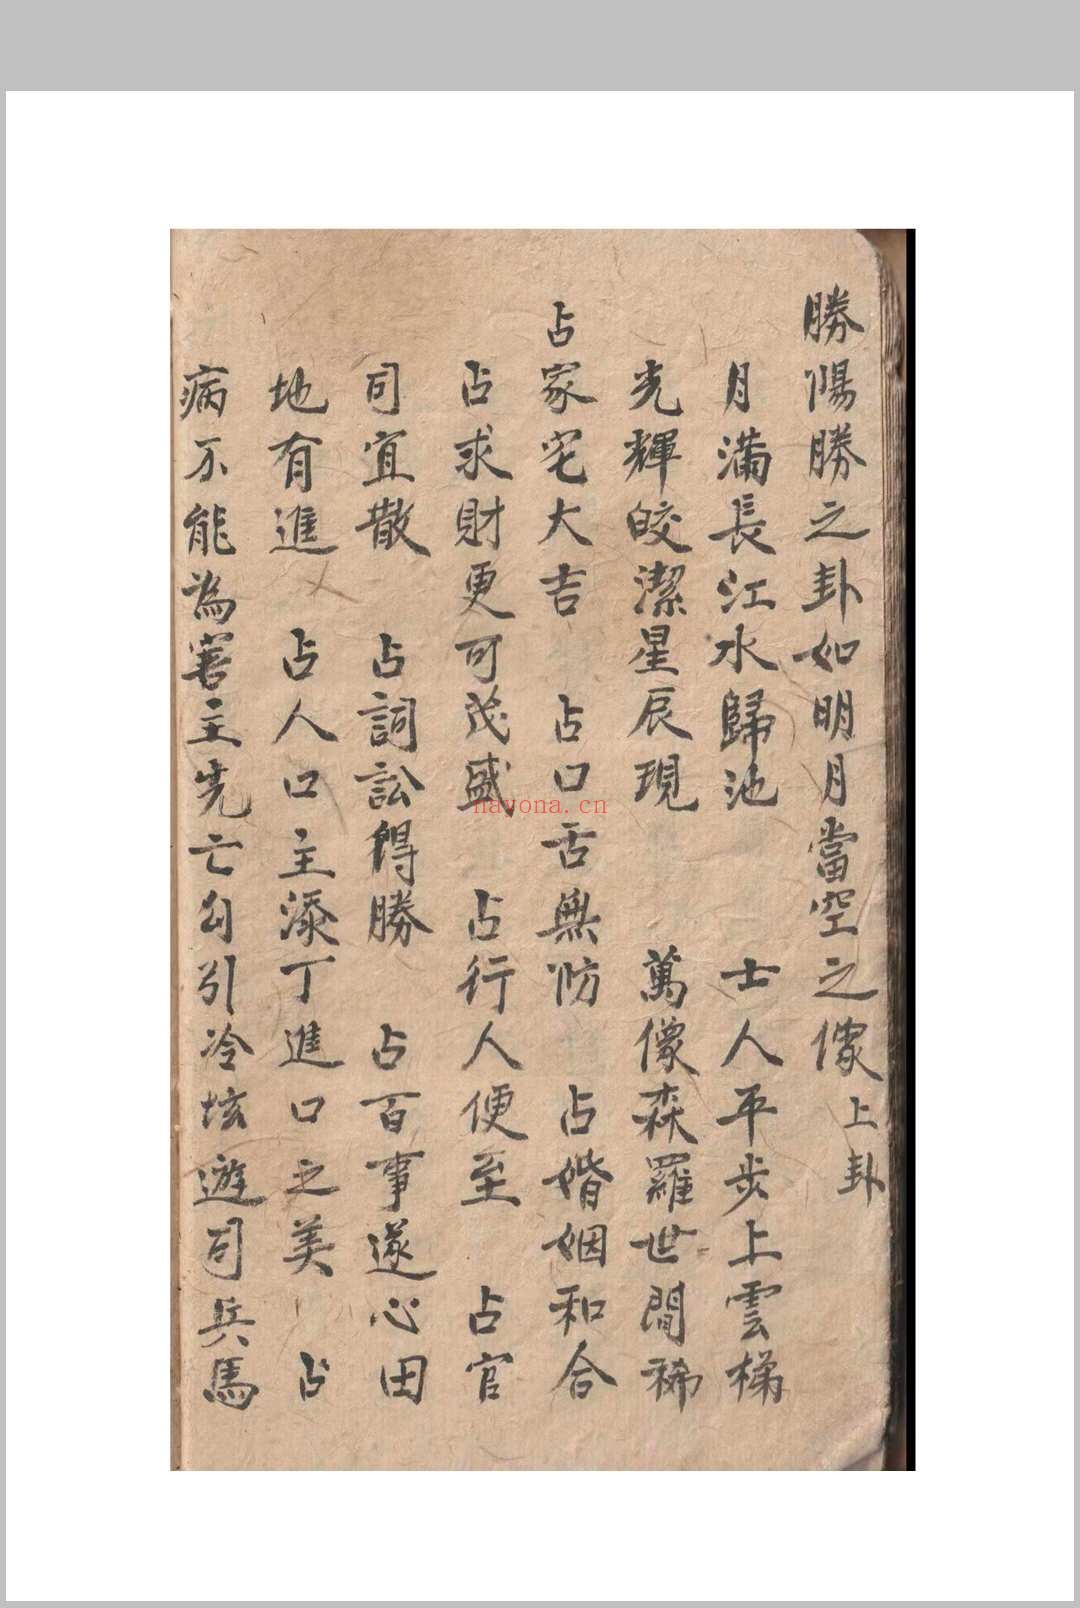 勝陽勝之卦如明月當空之像上卦
月滿長江水歸池 士人平步上雲梯
光輝皎潔星辰現 萬像森羅世間稀
占家宅大吉 占口舌無妨 占婚姻和合
占求財更可茂盛 占行人便至 占官
司宜散 占詞訟得勝 占百事遂心田
地有進 占人口主添丁進口之美 占
病不能為害主先亡勾引冷坛遊司兵馬
nayona.cn